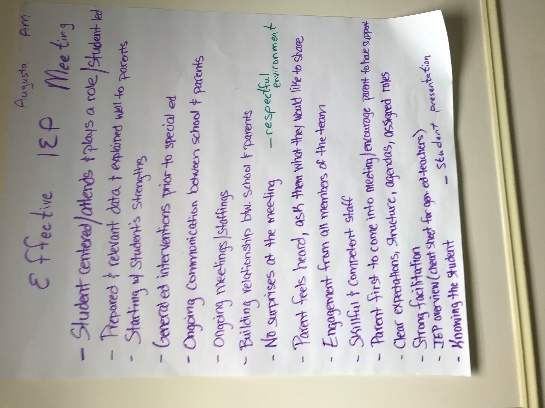 Augusta Am
Effective IEP Meeting
- Student centered/attends & plays a role/student led
- Prepared & relevant data & explained well to parents
- Starting w/ Student's Strengths
- General ed interventions prior to special ed
- Ongoing Communication between school & parents
- Ongoing meetings/staffings
- Building relationship btw. school & parents
- No surprises at the meeting
- respectful environment
- Parent feels heard, ask them what they would like to share
- Engagement from all members of the team
- Skillful & competent staff
- Parent first to come into meeting/encourage parent to have support
- Clear expectations, structure, agendas, assigned roles
- Strong facilitation
- IEP overview/(cheat sheet for gen ed teachers)
- Student presentation
- Knowing the student